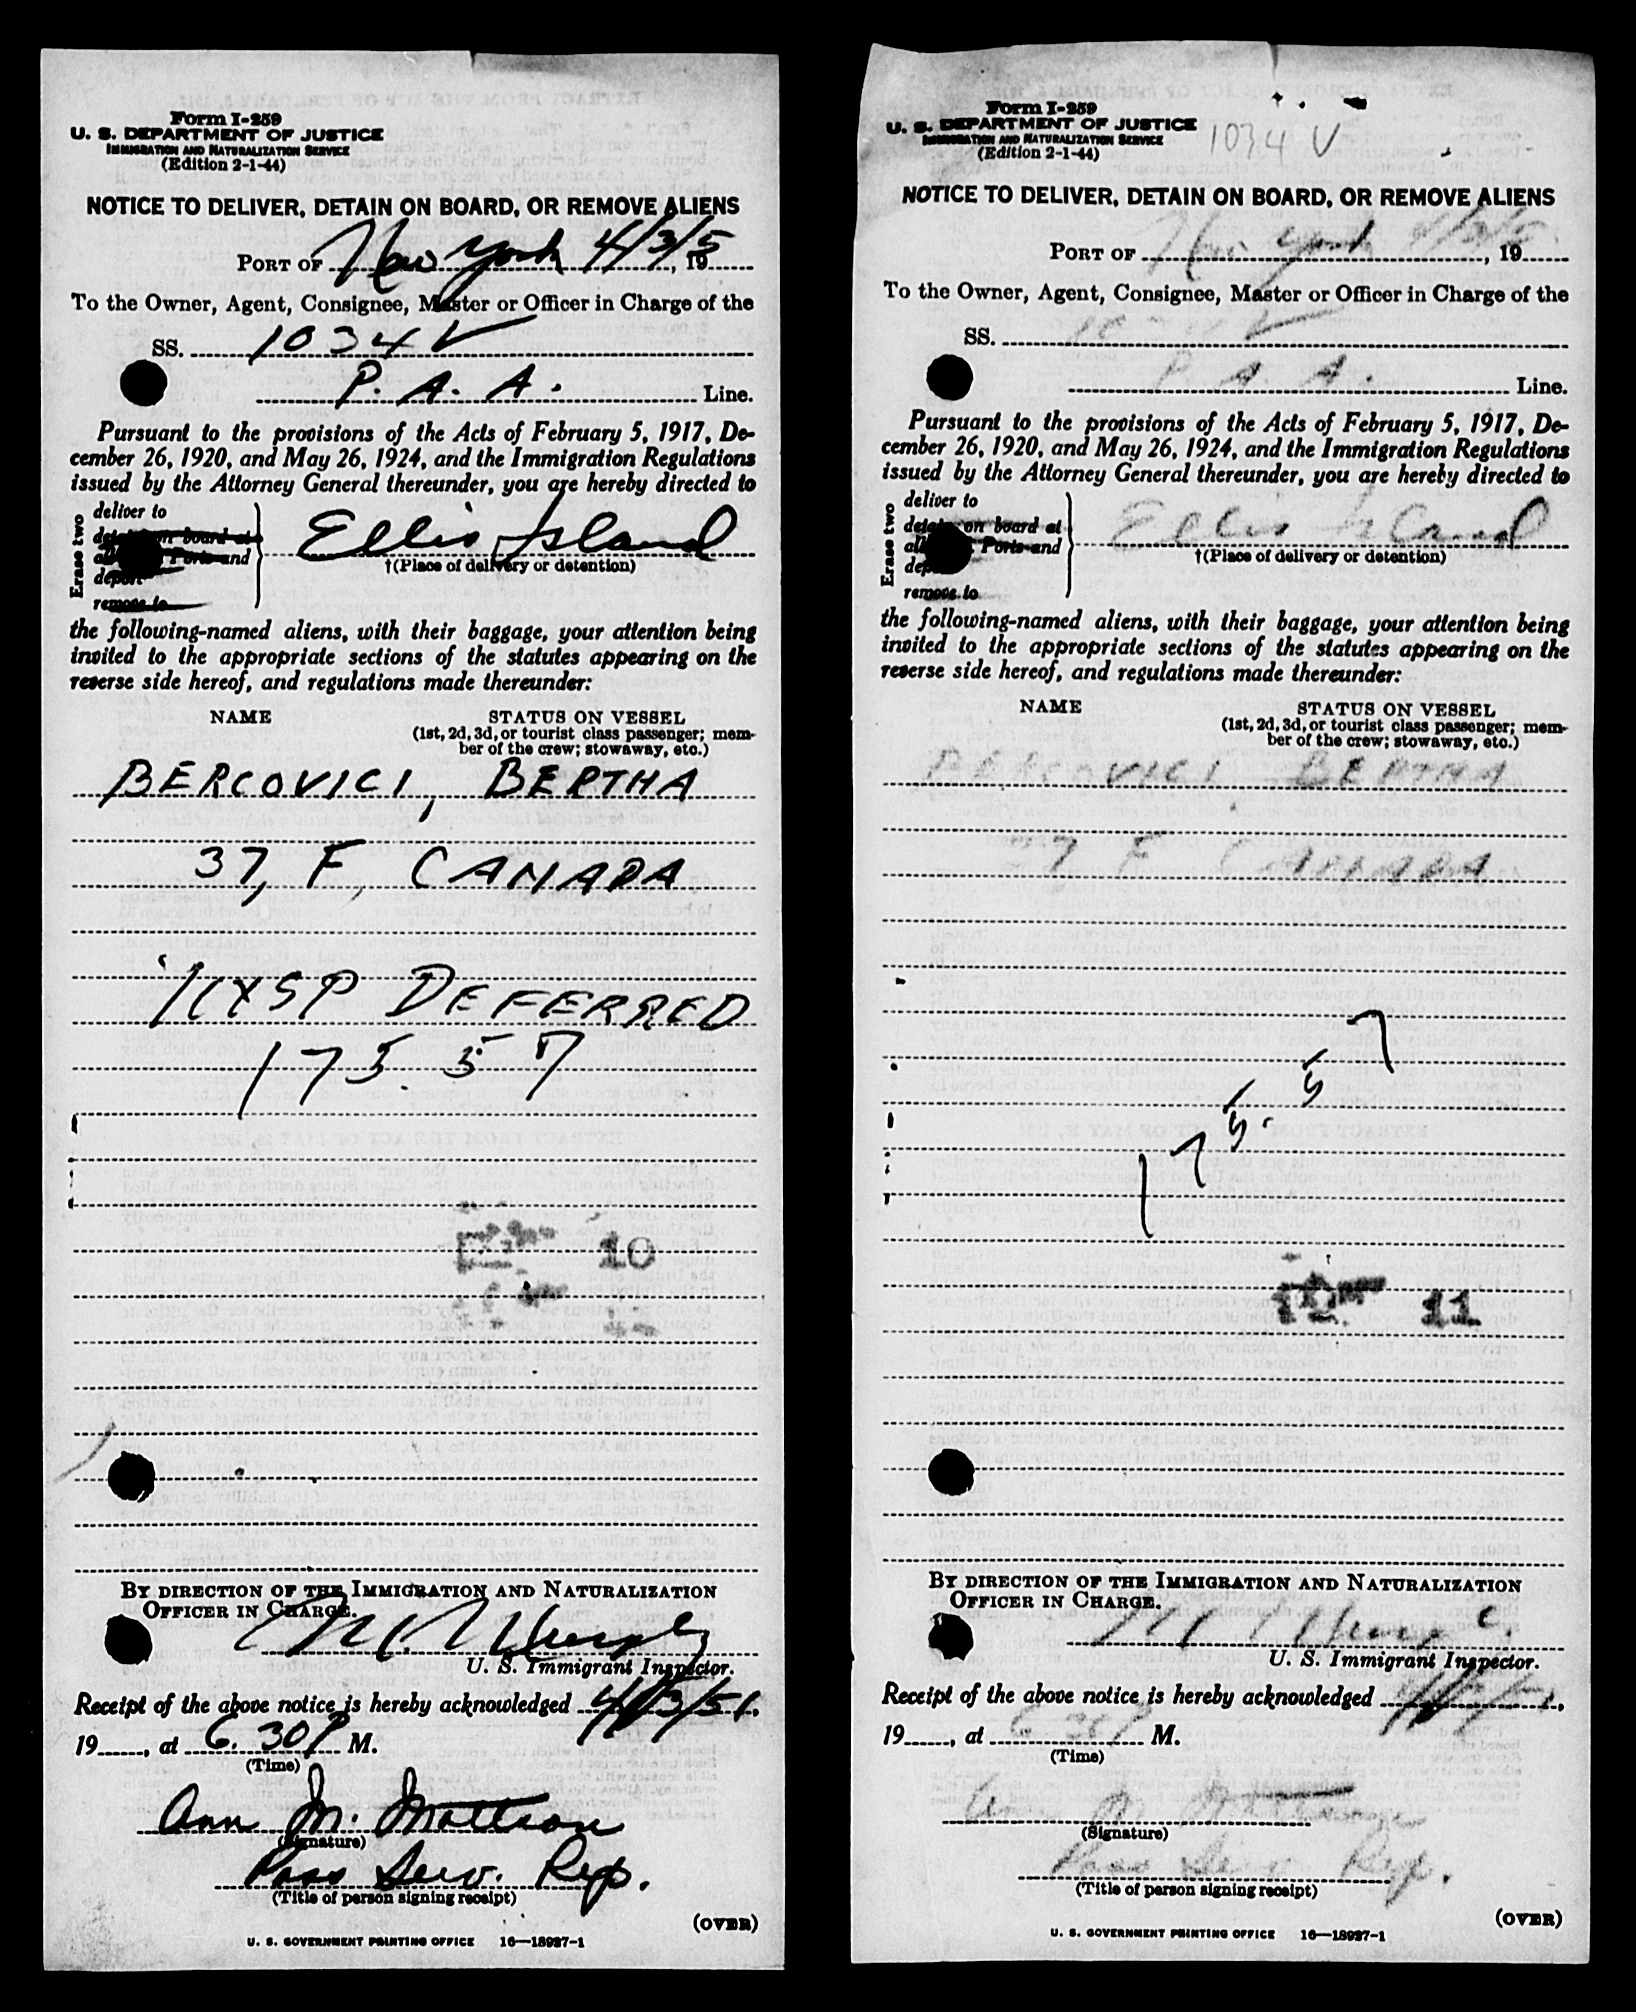 Form I-259
U. S. DEPARTMENT OF JUSTICE
IMMIGRATION AND NATURALIZATION SERVICE
(Edition 2-1-44)
NOTICE TO DELIVER, DETAIN ON BOARD, OR REMOVE ALIENS
PORT OF New York 4/3/5, 19
To the Owner, Agent, Consignee, Master or Officer in Charge of the
SS. 1034 V
P. A. A. Line.
Pursuant to the provisions of the Acts of February 5, 1917, De-
cember 26, 1920, and May 26, 1924, and the Immigration Regulations
issued by the Attorney General thereunder, you are hereby directed to
Erase two
deliver to
detain on board at
all Ports and
deport
remove to
Ellis Island
†(Place of delivery or detention)
the following-named aliens, with their baggage, your attention being
invited to the appropriate sections of the statutes appearing on the
reverse side hereof, and regulations made thereunder:
NAME STATUS ON VESSEL
(1st, 2d, 3d, or tourist class passenger; mem-
ber of the crew; stowaway, etc.)
BERCOVICI, BERTHA
37, F, CANADA
DEFERRED
175.57
10
BY DIRECTION OF THE IMMIGRATION AND NATURALIZATION
OFFICER IN CHARGE.
Murphy
U. S. Immigrant Inspector.
Receipt of the above notice is hereby acknowledged 4/3/51,
19, at 6.30 P M.
(Time)
Ann M. Mattson
(Signature)
Pass Serv. Rep.
(Title of person signing receipt)
(OVER)
U. S. GOVERNMENT PRINTING OFFICE 16—18927-1
Form I-259
U. S. DEPARTMENT OF JUSTICE
IMMIGRATION AND NATURALIZATION SERVICE
(Edition 2-1-44)
1034 V
NOTICE TO DELIVER, DETAIN ON BOARD, OR REMOVE ALIENS
PORT OF New York 4/3/5, 19
To the Owner, Agent, Consignee, Master or Officer in Charge of the
SS. 1034 V
P. A. A. Line.
Pursuant to the provisions of the Acts of February 5, 1917, De-
cember 26, 1920, and May 26, 1924, and the Immigration Regulations
issued by the Attorney General thereunder, you are hereby directed to
Erase two
deliver to
detain on board at
all Ports and
deport
remove to
Ellis Island
†(Place of delivery or detention)
the following-named aliens, with their baggage, your attention being
invited to the appropriate sections of the statutes appearing on the
reverse side hereof, and regulations made thereunder:
NAME STATUS ON VESSEL
(1st, 2d, 3d, or tourist class passenger; mem-
ber of the crew; stowaway, etc.)
BERCOVICI BERTHA
37 F CANADA
175.57
11
BY DIRECTION OF THE IMMIGRATION AND NATURALIZATION
OFFICER IN CHARGE.
U. S. Immigrant Inspector.
Receipt of the above notice is hereby acknowledged 4/3/51,
19, at 6 30 P M.
(Time)
Ann M. Mattson
(Signature)
Pass Serv. Rep.
(Title of person signing receipt)
(OVER)
U. S. GOVERNMENT PRINTING OFFICE 16—18927-1